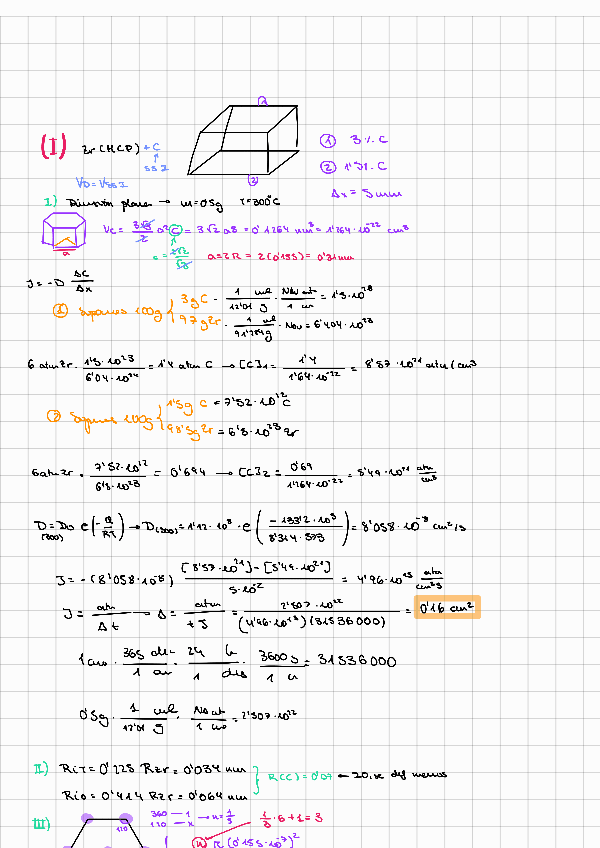 (I) Zr (HCP) + C
SS I
V0 = VSS I
②
②
① 3 % C
② 1'51. C
Δx = 5 mm
I) → m=0'5g T=300°C
Vc = 3√3/2 a² C = 3√2 a3 = 0'1264 nm³ = 1'264·10⁻²² cm³
a
a=2R = 2(0'155) = 0'31 nm
J = -D ΔC/Δx
① Suponemos 100g { 3g C · 1 mol/12'01 g · Nav at/1 = 1'5·10²³
97g Zr · 1 mol/91'224g · Nav = 6'404·10²³
6 atm Zr · 1'5·10²³/6'04·10²³ = 1'4 atm C → [C]₁ = 1'4/1'64·10⁻²² = 8'57·10²¹ atm/cm³
② Suponemos 100g { 1'5g C = 7'52·10²² C
98'5g Zr = 6'5·10²³ Zr
6 atm Zr · 7'52·10²²/6'5·10²³ = 0'694 → [C]₂ = 0'69/1'264·10⁻²² = 5'49·10²¹ atm/cm³
D = D0 e(-Q/RT) → D(300) = 1'12·10³ · e(-1332·10³/8'314·573) = 8'058·10⁻⁸ cm²/s
(300)
J = -(8'058·10⁻⁸) [8'57·10²¹]-[5'49·10²¹]/5·10⁻² = 4'96·10¹⁵ atm/cm²s
J = atm/Δt → Δ = atm/tJ = 2'507·10²²/(4'96·10¹⁵)(31536000) = 0'16 cm²
1 año · 365 dias/1 año · 24 h/1 dia · 3600s/1 h = 31536000
0'5g · 1 mol/12'01 g · Na at/1 = 2'507·10²²
II) RiT = 0'225 Rzr = 0'034 nm
Rio = 0'414 Rzr = 0'064 nm
} R(C) = 0'07 ←
III) 360 — 1 → n = 1/3
120 — x
1/3 · 6 + 1 = 3
120